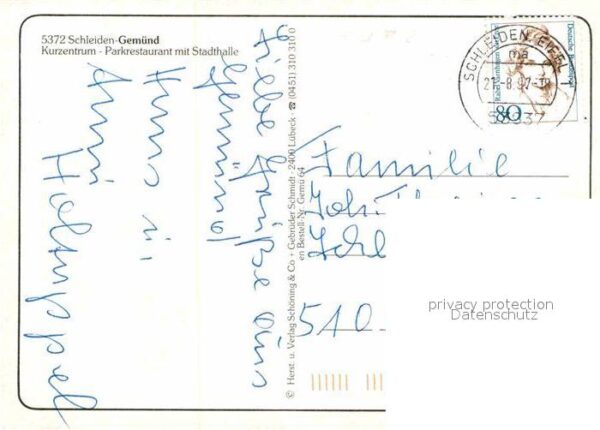 5372 Schleiden-Gemünd
Kurzentrum - Parkrestaurant mit Stadthalle
Liebe Grüße aus
Gemünd
Hans u.
Anni
© Herst. u. Verlag Schöning & Co + Gebrüder Schmidt · 2400 Lübeck · ☎ (0451) 310 310 0
en Bestell-Nr. Gemü 64
SCHLEIDEN, EIFEL 1
ma
21.-8.97-18
53937
Deutsche Bundespost
Rahel Varnhagen
80
Familie
Joh.
510
privacy protection
Datenschutz